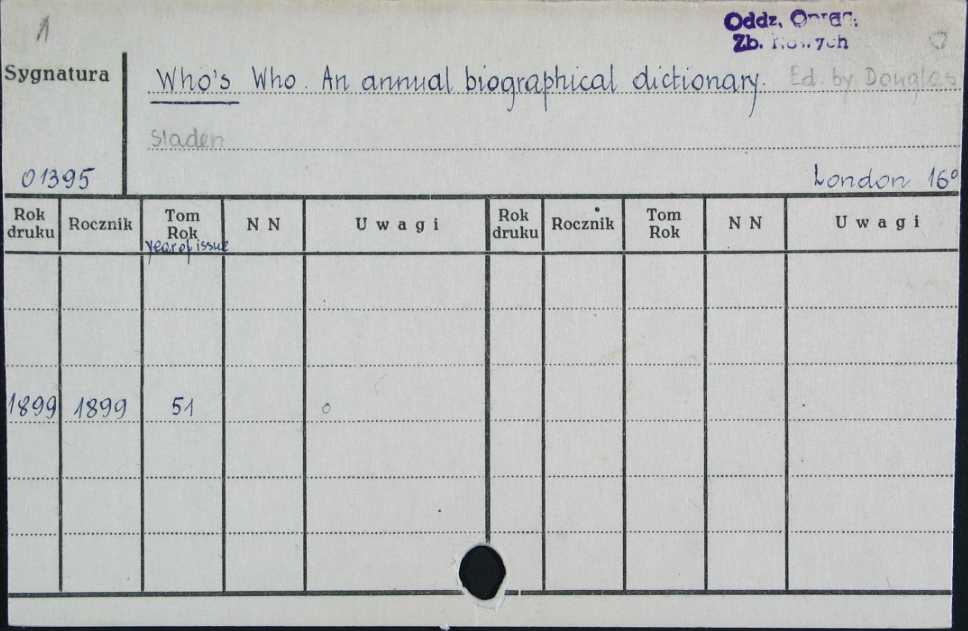 1
Oddz.
Zb.
Sygnatura
Who's Who. An annual biographical dictionary. Ed. by Douglas
Sladen
01395
London 16°
Rok druku Rocznik Tom Rok N N Uwagi Rok druku Rocznik Tom Rok N N Uwagi
year of issue
1899 1899 51 o